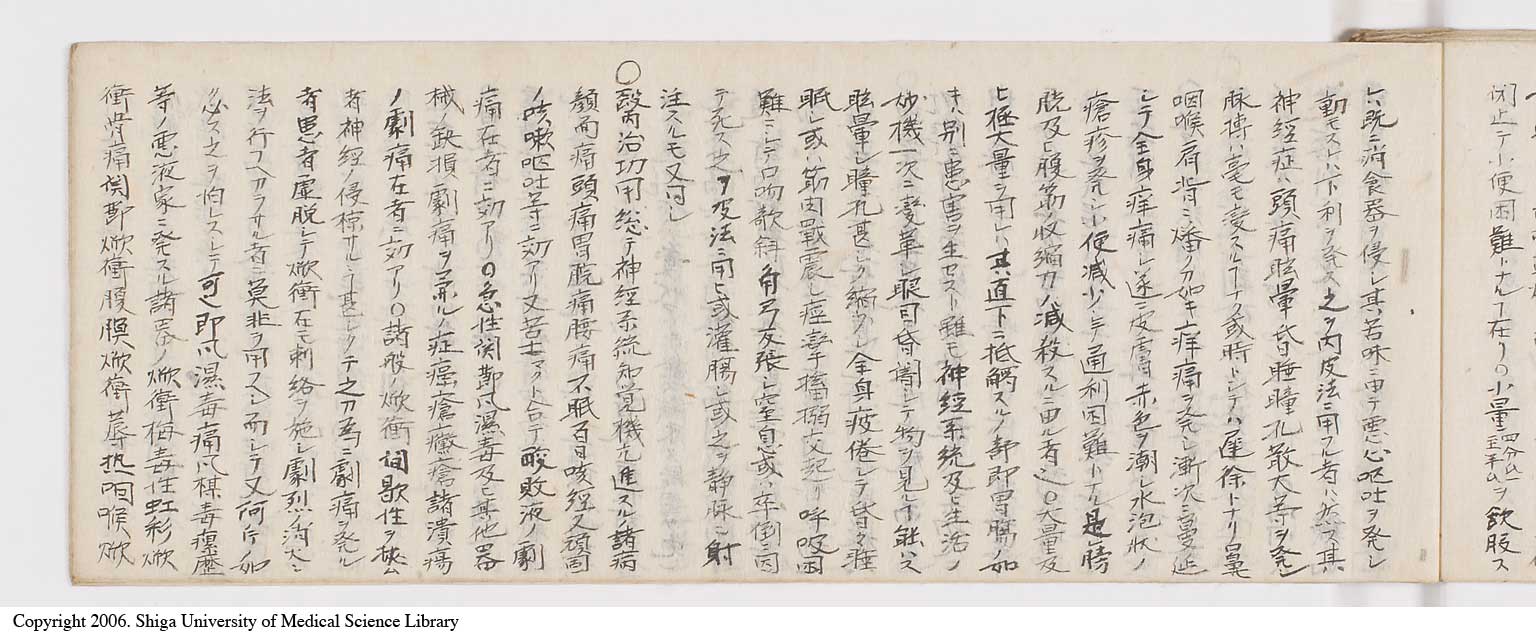 閉止シテ小便困難トナルヿ在リ〇小量四分ム一至半ムヲ飲服ス
レハ既ニ消食器ヲ侵シ其苦味ニ由テ悪心嘔吐ヲ発シ
動モスレハ下利ヲ発ス之ヲ内皮法ニ用フル者ハ然ラス其
神経症ハ頭痛眩暈昏睡瞳孔散大等ヲ発シ
脉搏ハ毫モ変スルヿナク或時トシテハ遅徐トナリ鼻
咽喉肩背ニ燔クカ如キ痒痛ヲ発シ漸次ニ蔓延
シテ全身痒痛シ遂ニ皮膚赤色ヲ潮シ水泡状ノ
瘡疹ヲ発シ小便減少シテ通利困難トナル是膀
胱及ヒ腹筋ノ収縮力ノ減殺スルニ由ル者也〇大量及
ヒ極大量ヲ用レハ其直下ニ抵触スルノ部即胃腸ノ如
キハ別ニ患害ヲ生セスト雖モ神経系統及ヒ生活ノ
妙機一次ニ変革シ眼目昏闇シテ物ヲ見ルヿ能ハス
眩暈シ瞳孔甚シク縮少シ全身疲倦シテ昏々睡
眠シ或ハ筋肉戦震シ痙攣搐搦交起リ呼吸困
難ニシテ口吻歙斜角弓反張シ窒息或ハ卒倒ニ因
テ死ス之ヲ皮法ニ用ヒ或灌腸シ或之ヲ静脉ニ射
注スルモ又同シ
〇醫治功用総テ神経系統知覚機亢進スルノ諸病
顔面痛頭痛胃脘痛腰痛不眠百日咳経久頑固
ノ咳嗽嘔吐等ニ効アリ又苦土ト合テ酸敗液ノ劇
痛在者ニ効アリ〇急性関節風湿毒及ヒ其他器
械ノ缺損劇痛ヲ兼ルノ症癌瘡癥瘡諸潰瘍
ノ劇痛在者ニ効アリ〇諸般ノ焮衝間歇性ヲ挾ム
者神経ノ侵掠サルヽヿ甚シクシテ之カ為ニ劇痛ヲ発ル
者患者虚脱シテ焮衝在テ刺絡ヲ施シ劇烈ノ消火
法ヲ行フヘカラサル者ニ莫非ヲ用フヘシ而シテ又荷
ク必ス之ヲ怕レスシテ可也即風湿毒痛風黴毒瘰癧
等ノ悪液家ニ発スル諸器ノ焮衝梅毒性虹彩焮
衝骨痛関節焮衝腹膜焮衝蓐热咽喉焮